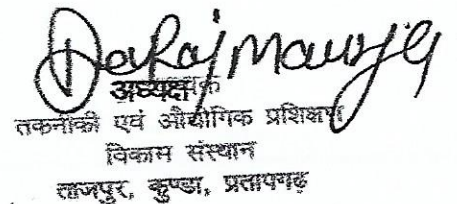 DevRaj Maurya
अध्यक्ष
तकनीकी एवं औद्योगिक प्रशिक्षण
विकास संस्थान
ताजपुर, कुण्डा, प्रतापगढ़